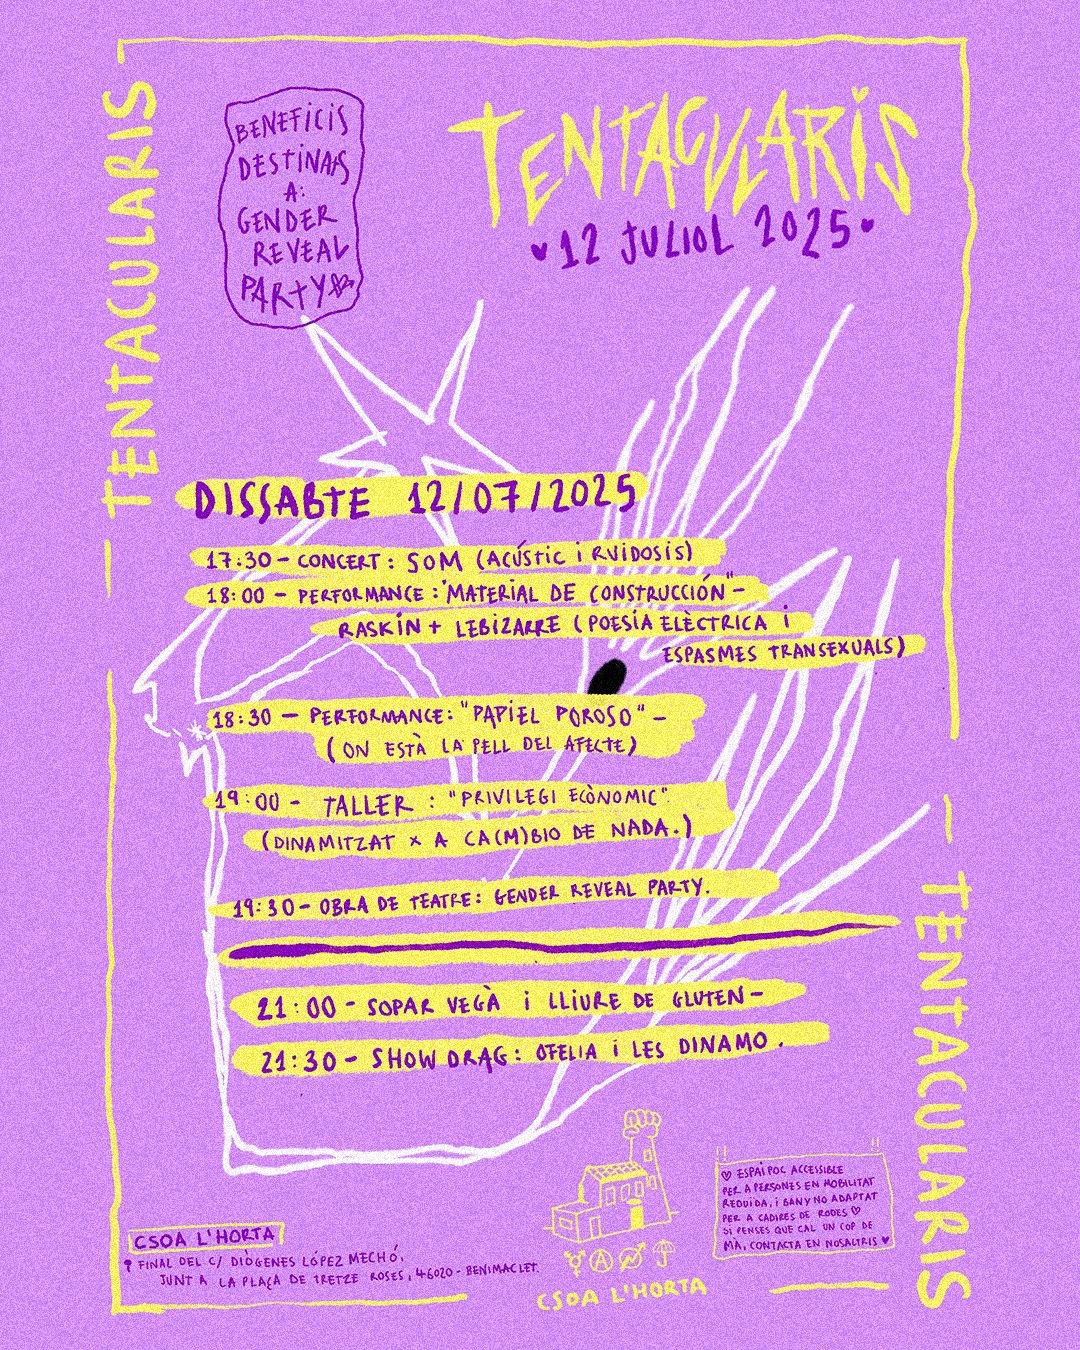 TENTACULARIS
BENEFICIS
DESTINATS
A:
GENDER
REVEAL
PARTY
TENTACULARIS
12 JULIOL 2025
DISSABTE 12/07/2025
17:30 - CONCERT: SOM (ACÚSTIC i RUIDOSIS)
18:00 - PERFORMANCE: "MATERIAL DE CONSTRUCCIÓN" -
RASKIN + LEBIZARRE (POESÍA ELÈCTRICA i
ESPASMES TRANSEXUALS)
18:30 - PERFORMANCE: "PAPIEL POROSO" -
(ON ESTÀ LA PELL DEL AFECTE)
19:00 - TALLER: "PRIVILEGI ECÒNOMIC".
(DINAMITZAT x A CA(M)BIO DE NADA.)
19:30 - OBRA DE TEATRE: GENDER REVEAL PARTY.
21:00 - SOPAR VEGÀ i LLIURE DE GLUTEN -
21:30 - SHOW DRAG: OFELIA i LES DINAMO.
TENTACULARIS
CSOA L'HORTA
FINAL DEL C/ DIÒGENES LÓPEZ MECHÓ,
JUNT A LA PLAÇA DE TRETZE ROSES, 46020 - BENIMACLET.
CSOA L'HORTA
♡ ESPAI POC ACCESSIBLE
PER A PERSONES EN MOBILITAT
REDUÏDA, i BANY NO ADAPTAT
PER A CADIRES DE RODES ♡
SI PENSES QUE CAL UN COP DE
MÀ, CONTACTA EN NOSALTRIS ♥